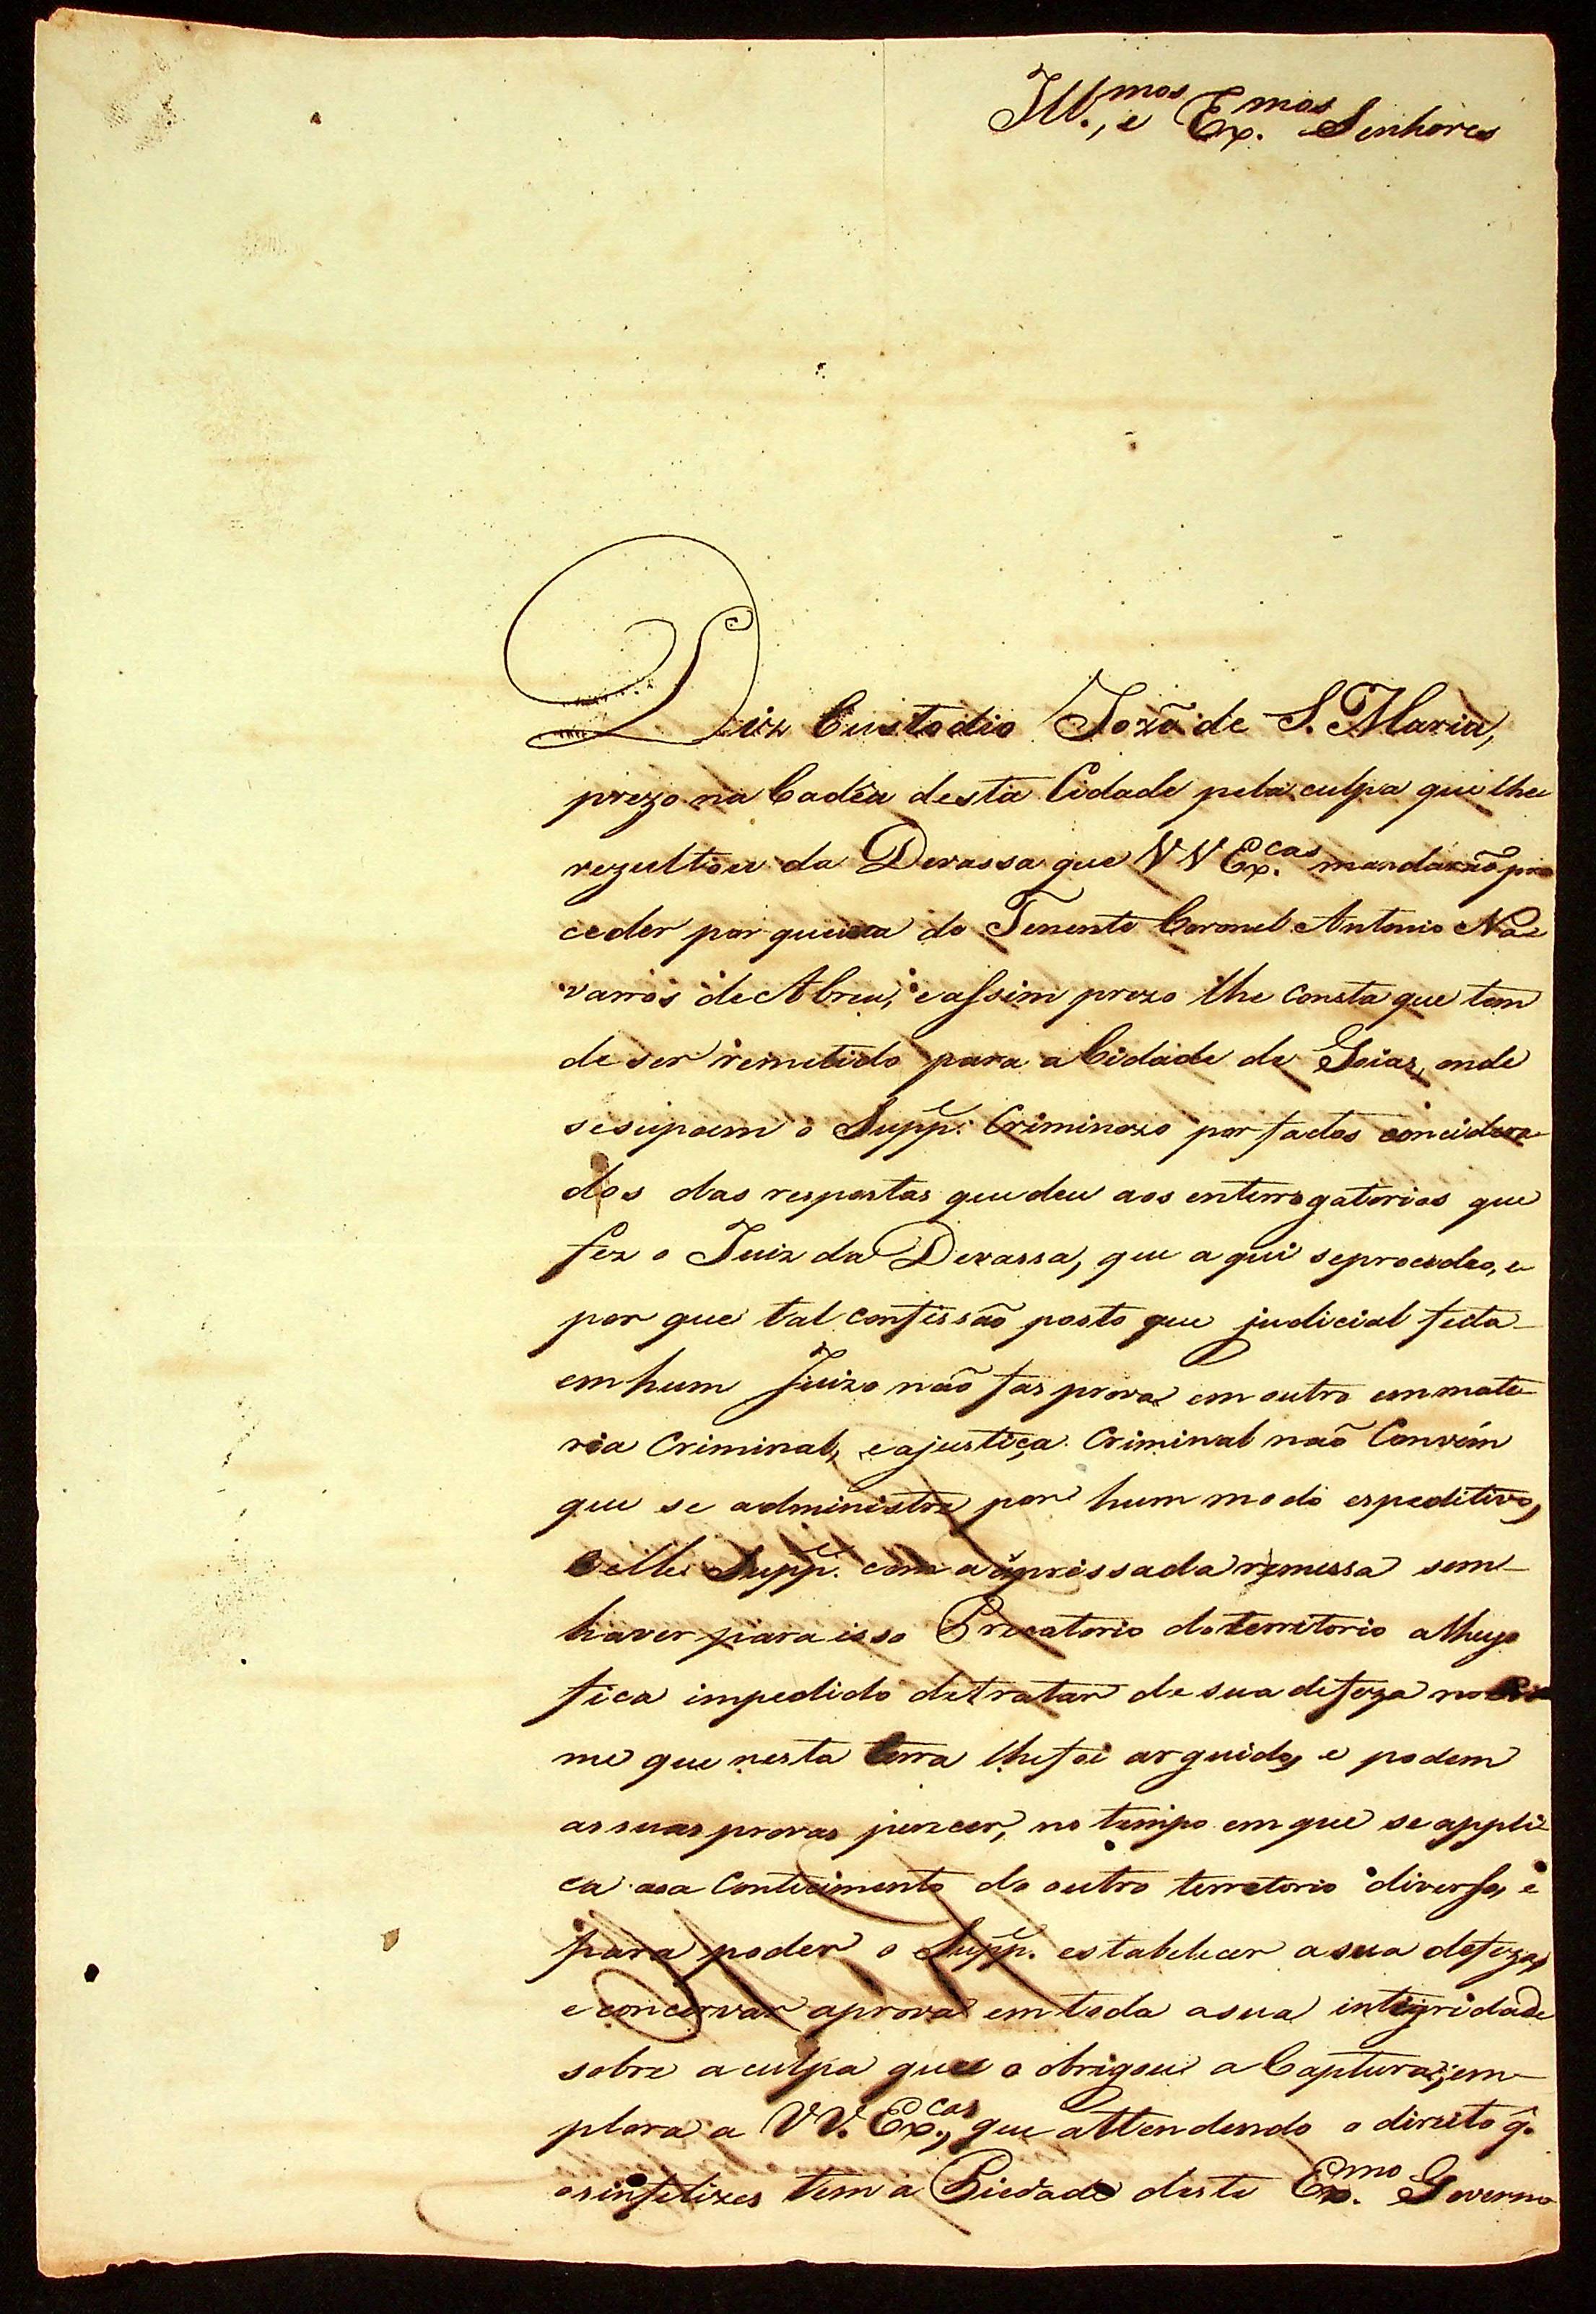 Ill.mos, e Ex.mos Senhores
Diz Custodio Jozé de S. Maria,
prezo na Cadêa desta Cidade pela culpa que lhe
rezultou da Devassa que VV Ex.cas mandarão pro
ceder por queixa do Tenente Coronel Antonio Na
varros de Abreu, e assim prezo lhe consta que tem
de ser remetido para a Cidade de Goias, onde
se supoem o Supp.e Criminozo por factos concidera
dos das respostas que deu aos enterrogatorios que
fez o Juiz da Devassa, que a qui se procedeo, e
por que tal confissão posto que judicial feita
em hum Juizo não fas prova em outro em mate
ria Criminal, e a justiça Criminal não Convém
que se administre por hum modo espeditivo,
e elle Supp.e com a apressada remessa sem
haver para isso Precatorio do territorio alheyo
fica impedido de tratar de sua defeza no Cri
me que nesta terra lhe foi arguido, e podem
as suas provas perecer, no tempo em que se appli
ca ao a Contecimento do outro territorio diverso, e
para poder o Supp.e estabelecer a sua defeza,
e concervar a prova em toda a sua integridade
sobre a culpa que o obrigou a Captura; em
plora a VV. Ex.cas, que attendendo o direito q.
os infelizes tem a Piedade deste Ex.mo Governo